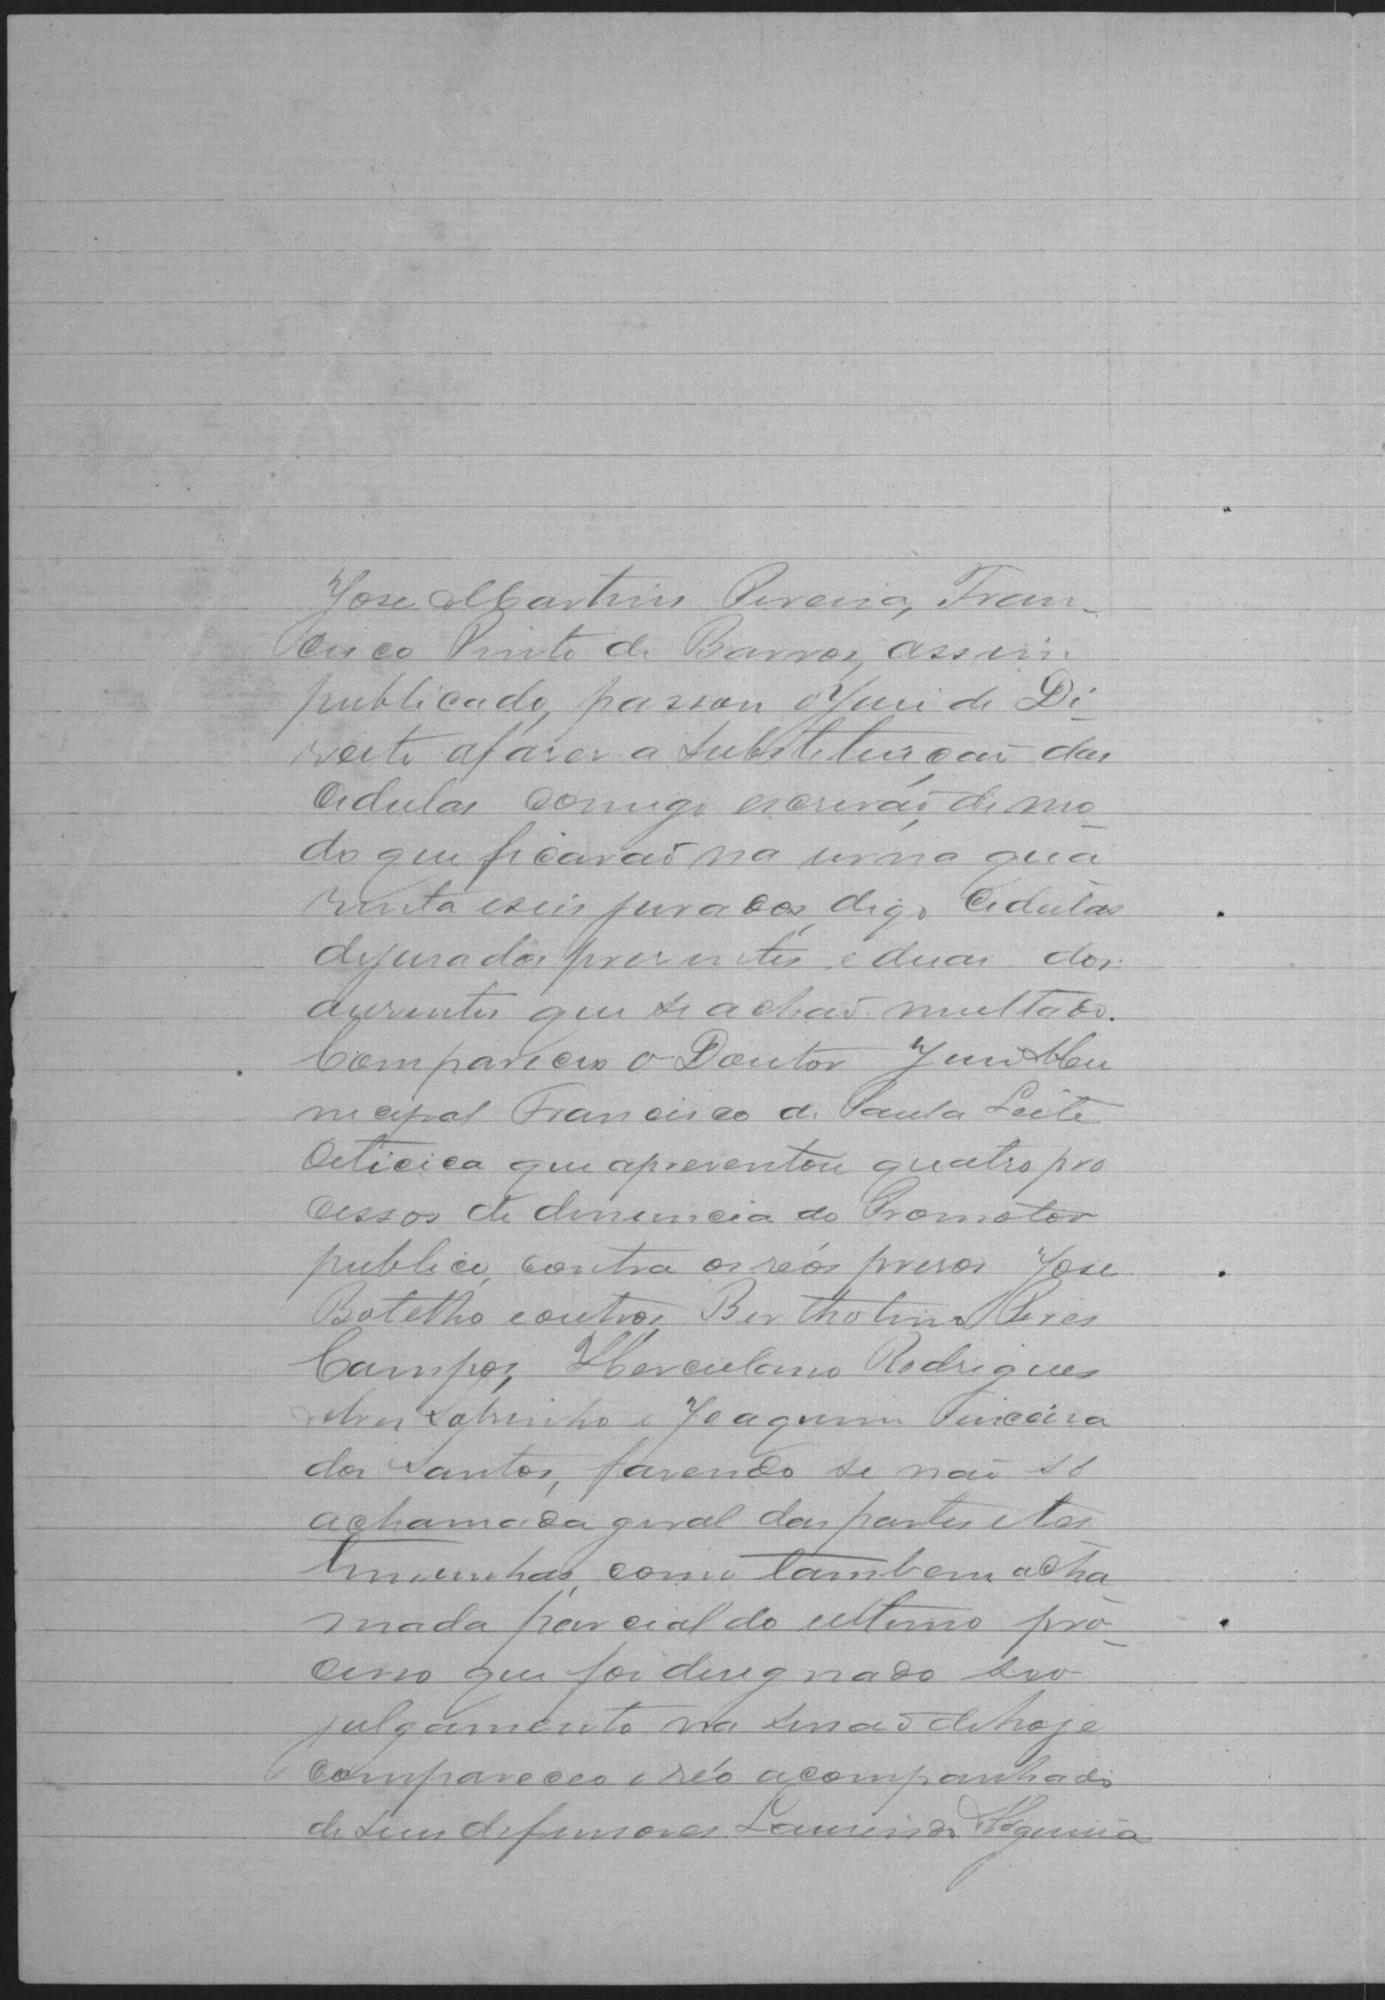 Jose Martins Pereira, Fran-
cisco Pinto de Barros, assim
publicado, passou o Juiz de Di-
reito afazer a substituiçaõ das
cedulas comigo escrivaõ, de mo-
do que ficaraõ na urna qua-
renta eseis jurados, digo cedulas
dejurados presentes e duas dos
auzentes que se achaõ multado.
Compareceo o Doutor Juiz Mu
nicipal Francisco de Paula Leite
Oiticica que apresentou quatro pro
cessos de denuncia do Promotor
publico, contra os réos presos Jose
Botelho eoutros, Bertholino Pires
Campos, Herculano Rodrigues
Alves Sobrinho e Joaquim Teixeira
dos Santos, fazendo se naõ só
achamada geral das partes etes
timunhas, como tambem acha
mada parcial do ultimo pro-
cesso que foi designado seo
julgamento na sessaõ dehoje
compareceo o réo acompanhado
de seus defensores Laurindo